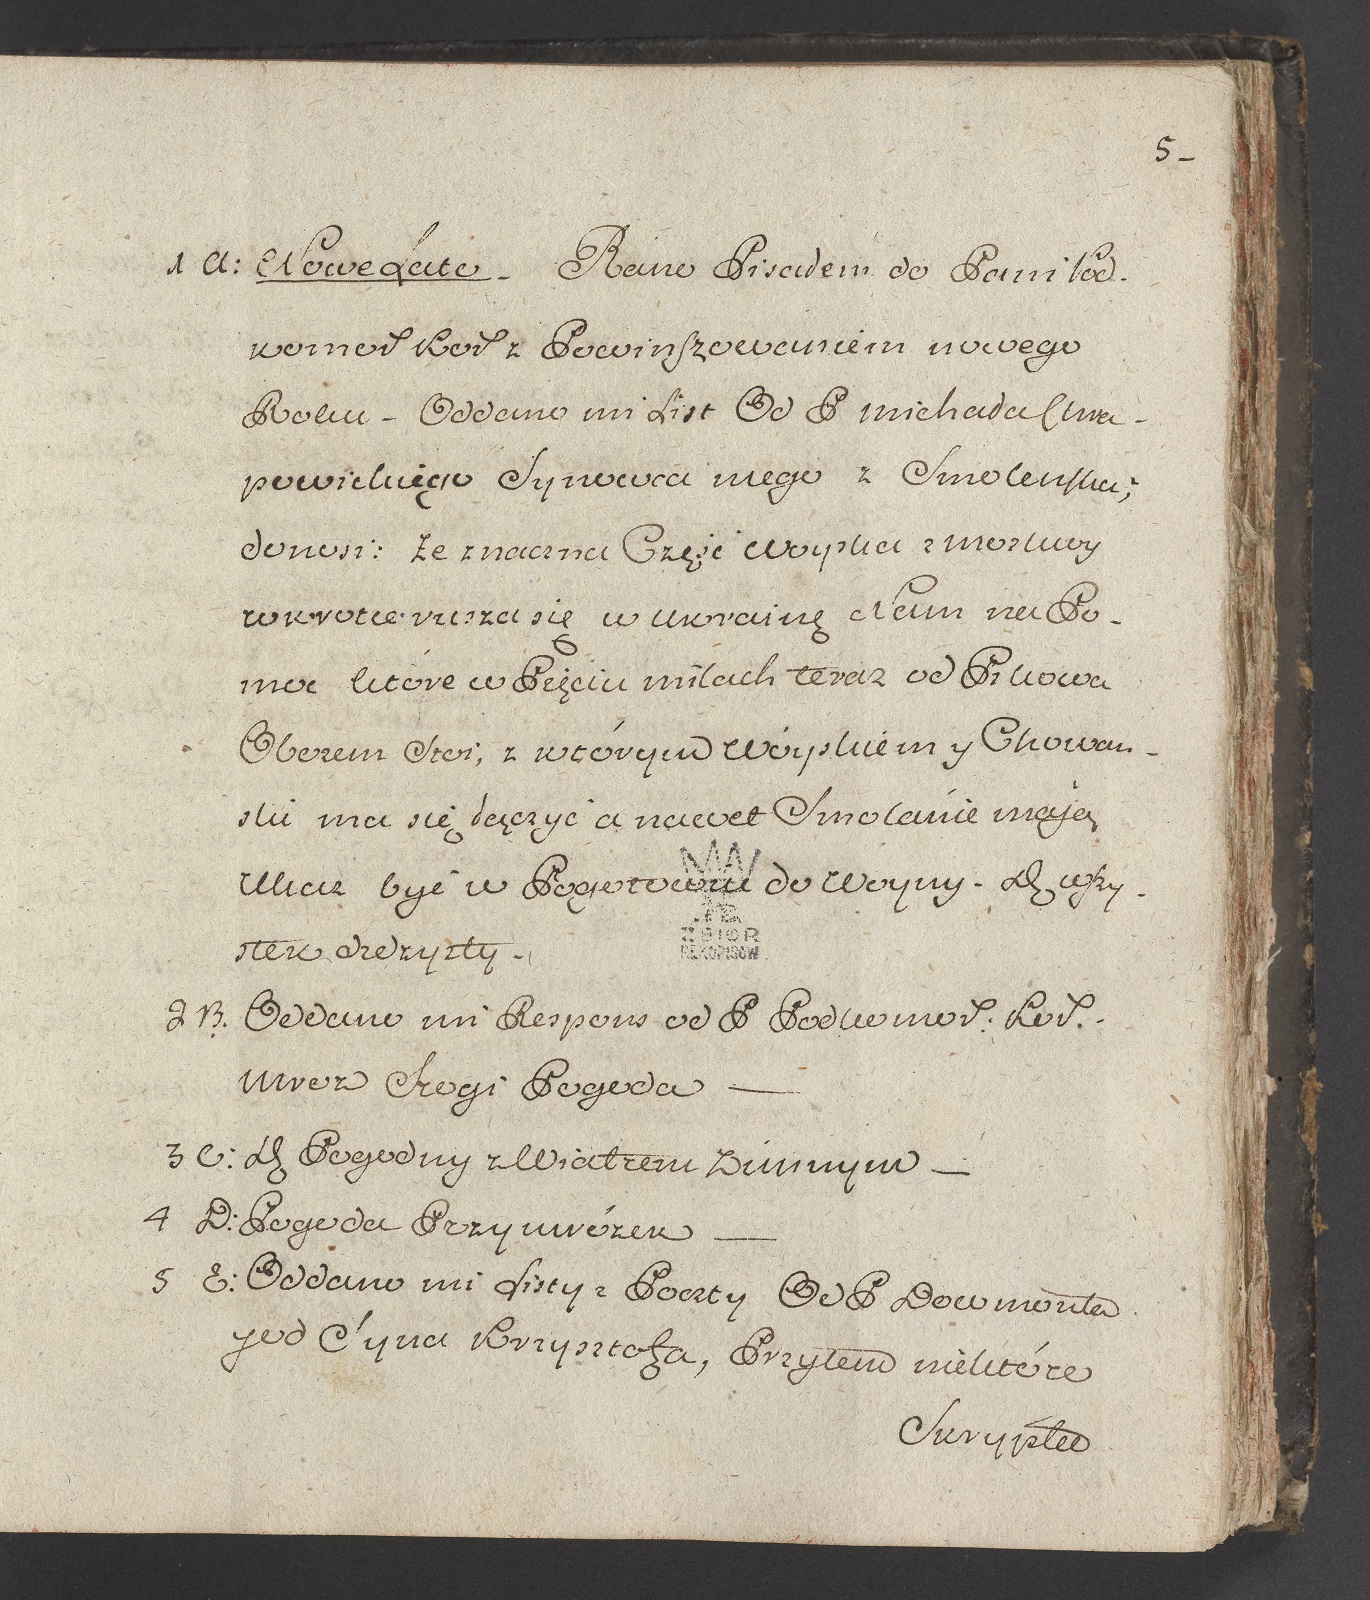 5-
1 A: Nowe Lato - Rano Pisałem do Pani Pod-
komor Kor z Powinszowaniem nowego
Roku - Oddano mi List Od P michała
Synowca mego z Smolenska;
donosi: że znaczna Część woyska z moskwy
wkrotce rusza się w ukrainę Nam na Po-
moc które w Pięciu milach teraz od Pikowa
Obozem stoi, z którym Woyskiem y Chowan-
ski ma się łączyć a nawet Smolanie mają
Ukaz być w Pogotowiu do Woyny - wszy-
stek
ZBIOR
RĘKOPISOW
2 B. Oddano mi Respons od P Podkomor: Kor. -
mroz Srogi Pogoda —
3 C: Pogodny z Wiatrem Zimnym —
4 D: Pogoda Przymrózek —
5 E: Oddano mi Listy z Poczty Od P Dowmonta
y od Syna Krzysztofa, Przytem niektóre
Skrypta